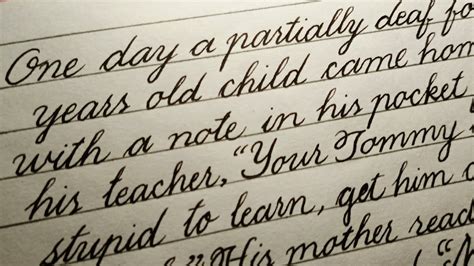 One day a partially deaf fo
years old child came hom
with a note in his pocket
his teacher, "Your Tommy
stupid to learn, get him o
" His mother read